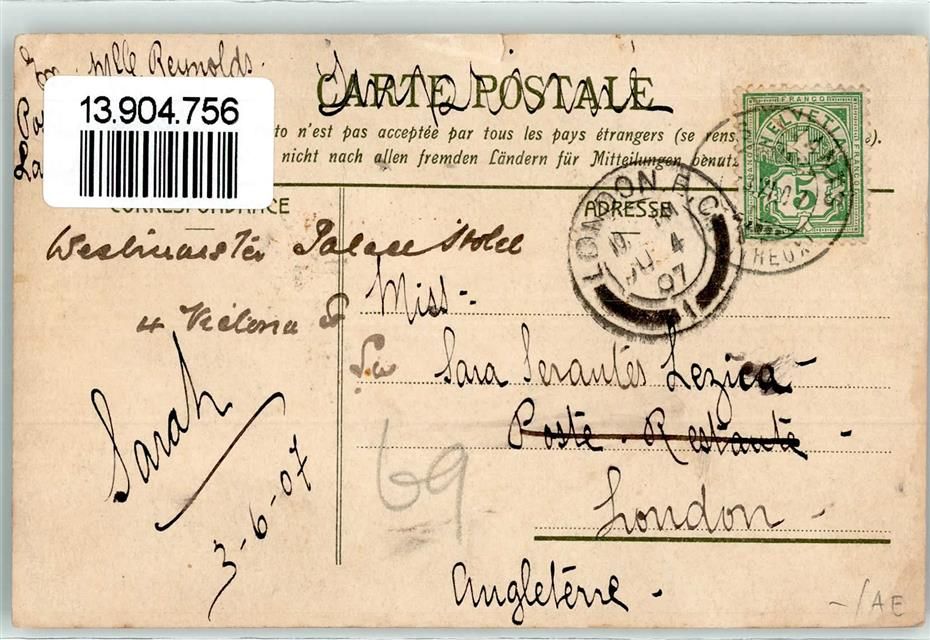 Mlle Reynolds.
13.904.756
CARTE POSTALE
Imprimé
to n'est pas acceptée par tous les pays étrangers (se rens
nicht nach allen fremden Ländern für Mitteilungen benutz
CORRESPONDANCE
ADRESSE
FRANCO
HELVETIA
5
LONDON E.C.
JU 4
07
1
Westminster Palace Hotel
4 Victoria St
Miss
S.W
Sara Serantes Lezica
Poste Restante
69
London
Angleterre
Sarah
3-6-07
-/AE